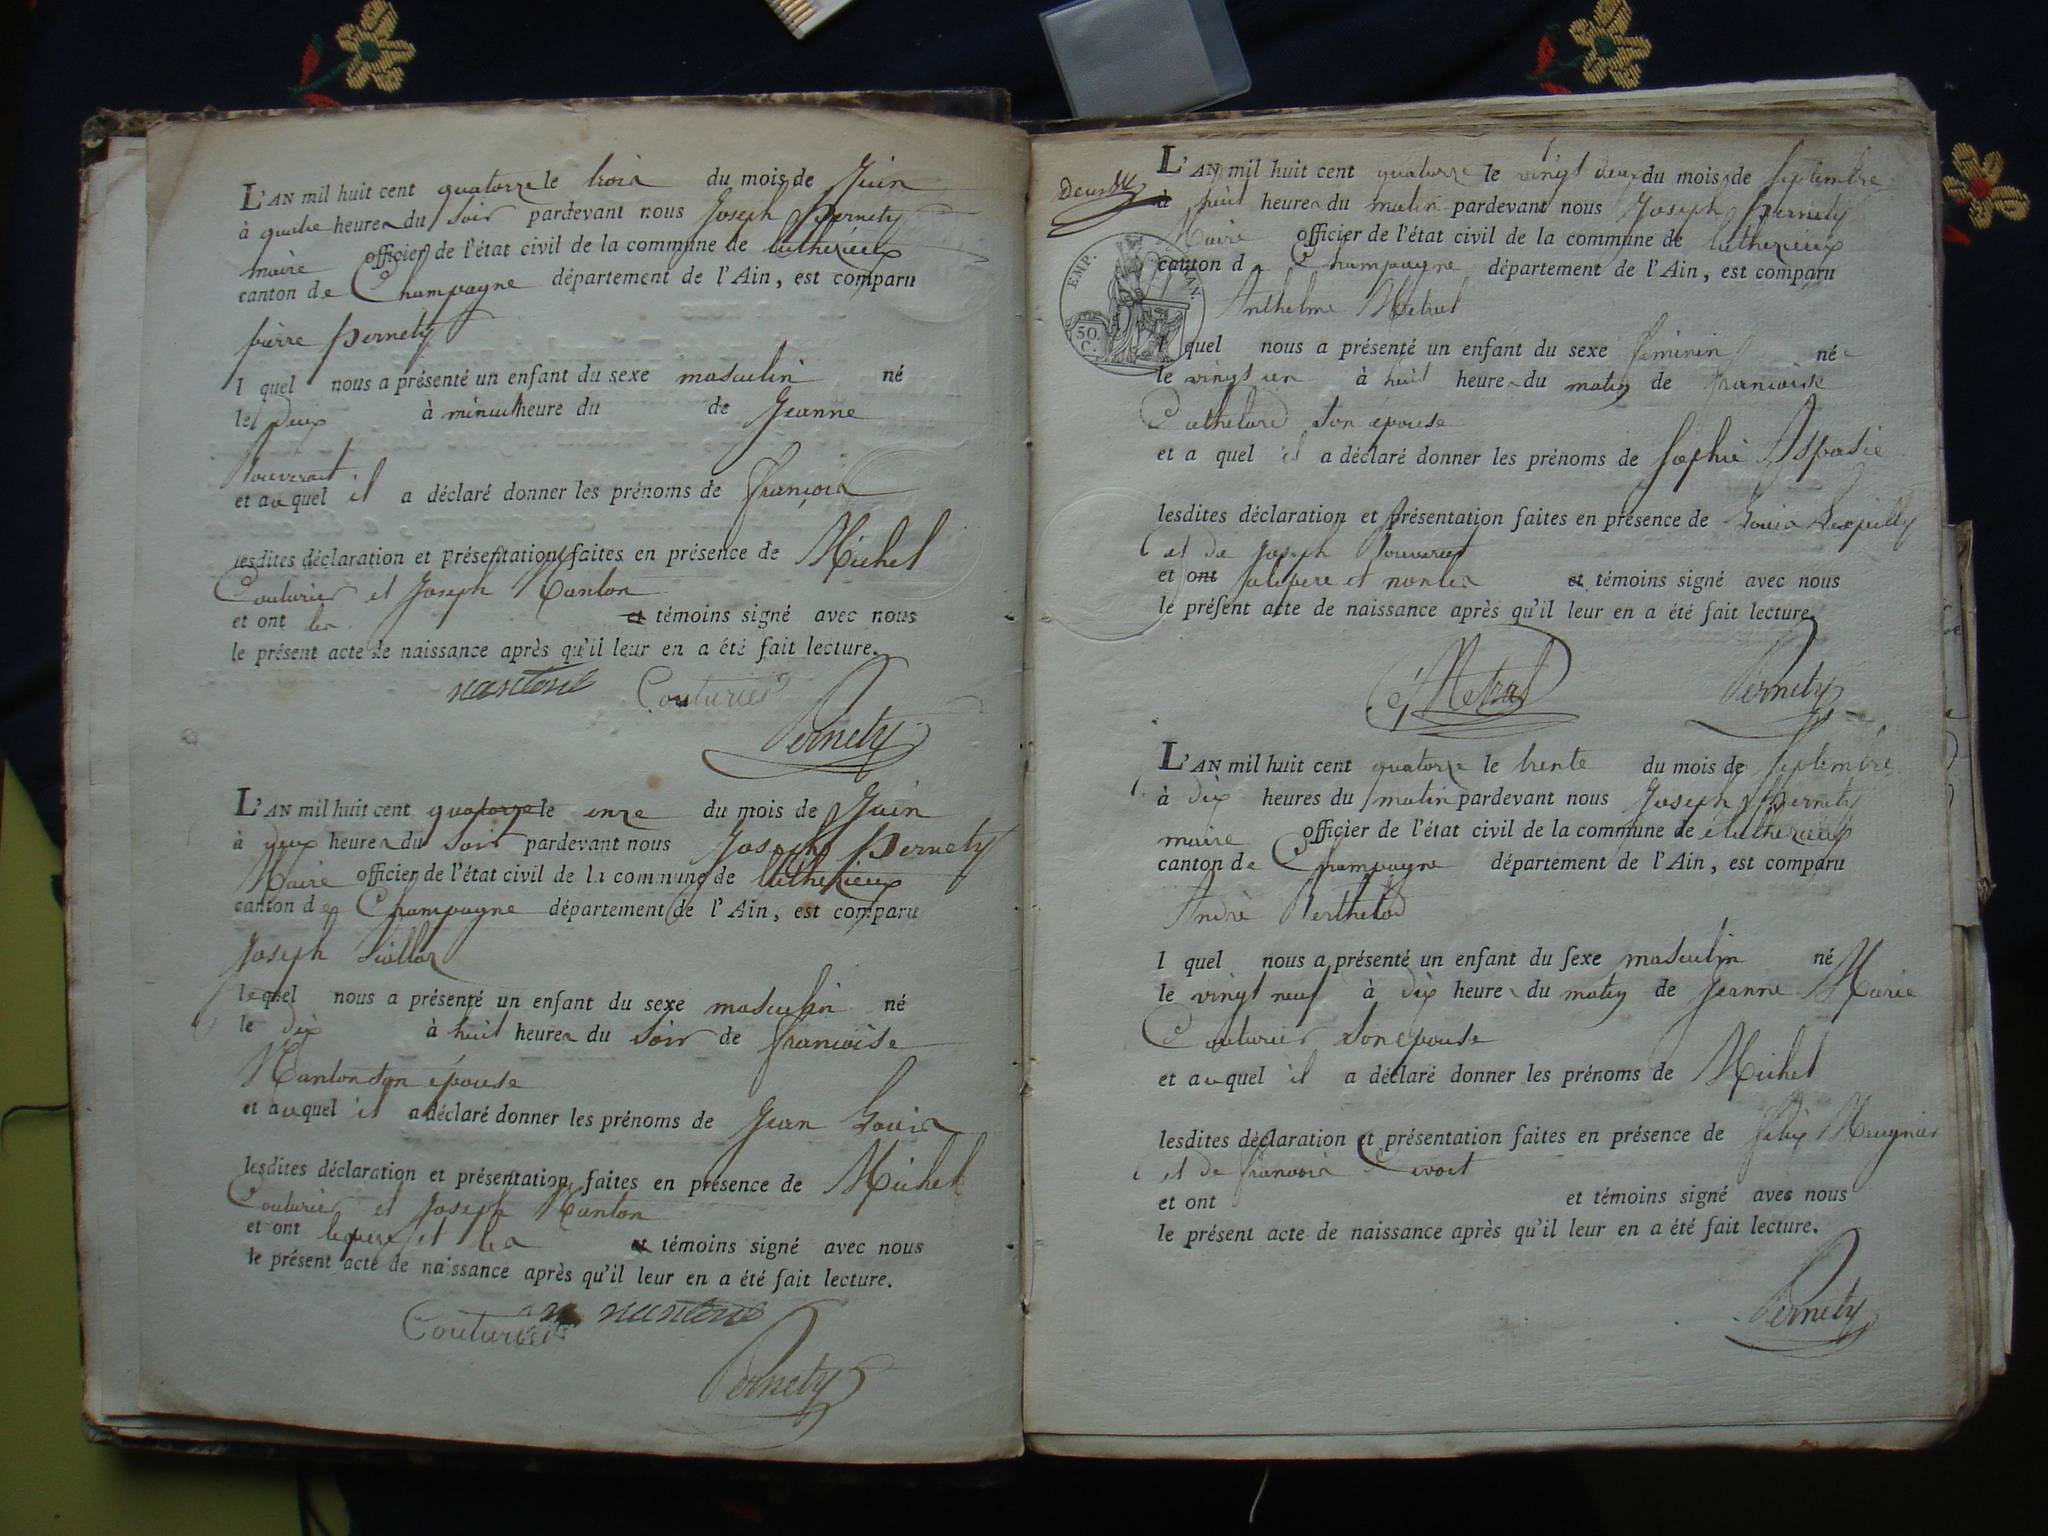 L'AN mil huit cent quatorze le trois du mois de Juin
à quatre heures du Soir pardevant nous Joseph Pernety
maire officier de l'état civil de la commune de
canton de Champagne département de l'Ain, est comparu
pierre Pernety
l quel nous a présenté un enfant du sexe masculin né
le Deux à minuit heure du de Jeanne
et au quel il a déclaré donner les prénoms de françois
lesdites déclaration et présentation faites en présence de Michel
Couturier et Joseph Nanton
et ont les et témoins signé avec nous
le présent acte de naissance après qu'il leur en a été fait lecture.
Couturier
Pernety
L'AN mil huit cent quatorze le onze du mois de Juin
à deux heures du Soir pardevant nous Joseph Pernety
Maire officier de l'état civil de la commune de
canton de Champagne département de l'Ain, est comparu
Joseph
lequel nous a présenté un enfant du sexe masculin né
le dix à huit heures du Soir de francoise
Nanton son épouse
et au quel il a déclaré donner les prénoms de Jean Louis
lesdites déclaration et présentation faites en présence de Michel
Couturier et Joseph Nanton
et ont le pere et les et témoins signé avec nous
le présent acte de naissance après qu'il leur en a été fait lecture.
Couturier
Pernety
EMP.
50.
C.
L'AN mil huit cent quatorze le vingt deux du mois de Septembre
à huit heures du matin pardevant nous Joseph Pernety
Maire officier de l'état civil de la commune de
canton d Champagne département de l'Ain, est comparu
Anthelme Metral
l quel nous a présenté un enfant du sexe feminin née
le vingt un à huit heures du matin de francoise
son épouse
et a quel il a déclaré donner les prénoms de Sophie Aspasie
lesdites déclaration et présentation faites en présence de Louis
et de Joseph
et ont le pere et non les et témoins signé avec nous
le préſent acte de naissance après qu'il leur en a été fait lecture.
Metral
Pernety
L'AN mil huit cent quatorze le trente du mois de Septembre
à dix heures du matin pardevant nous Joseph Pernety
maire officier de l'état civil de la commune de
canton de Champagne département de l'Ain, est comparu
André Berthelod
l quel nous a présenté un enfant du ſexe masculin né
le vingt neuf à dix heures du matin de Jeanne Marie
Couturier son épouse
et au quel il a déclaré donner les prénoms de Michel
lesdites déclaration et présentation faites en présence de Felix
et de francois
et ont et témoins signé avec nous
le présent acte de naissance après qu'il leur en a été fait lecture.
Pernety